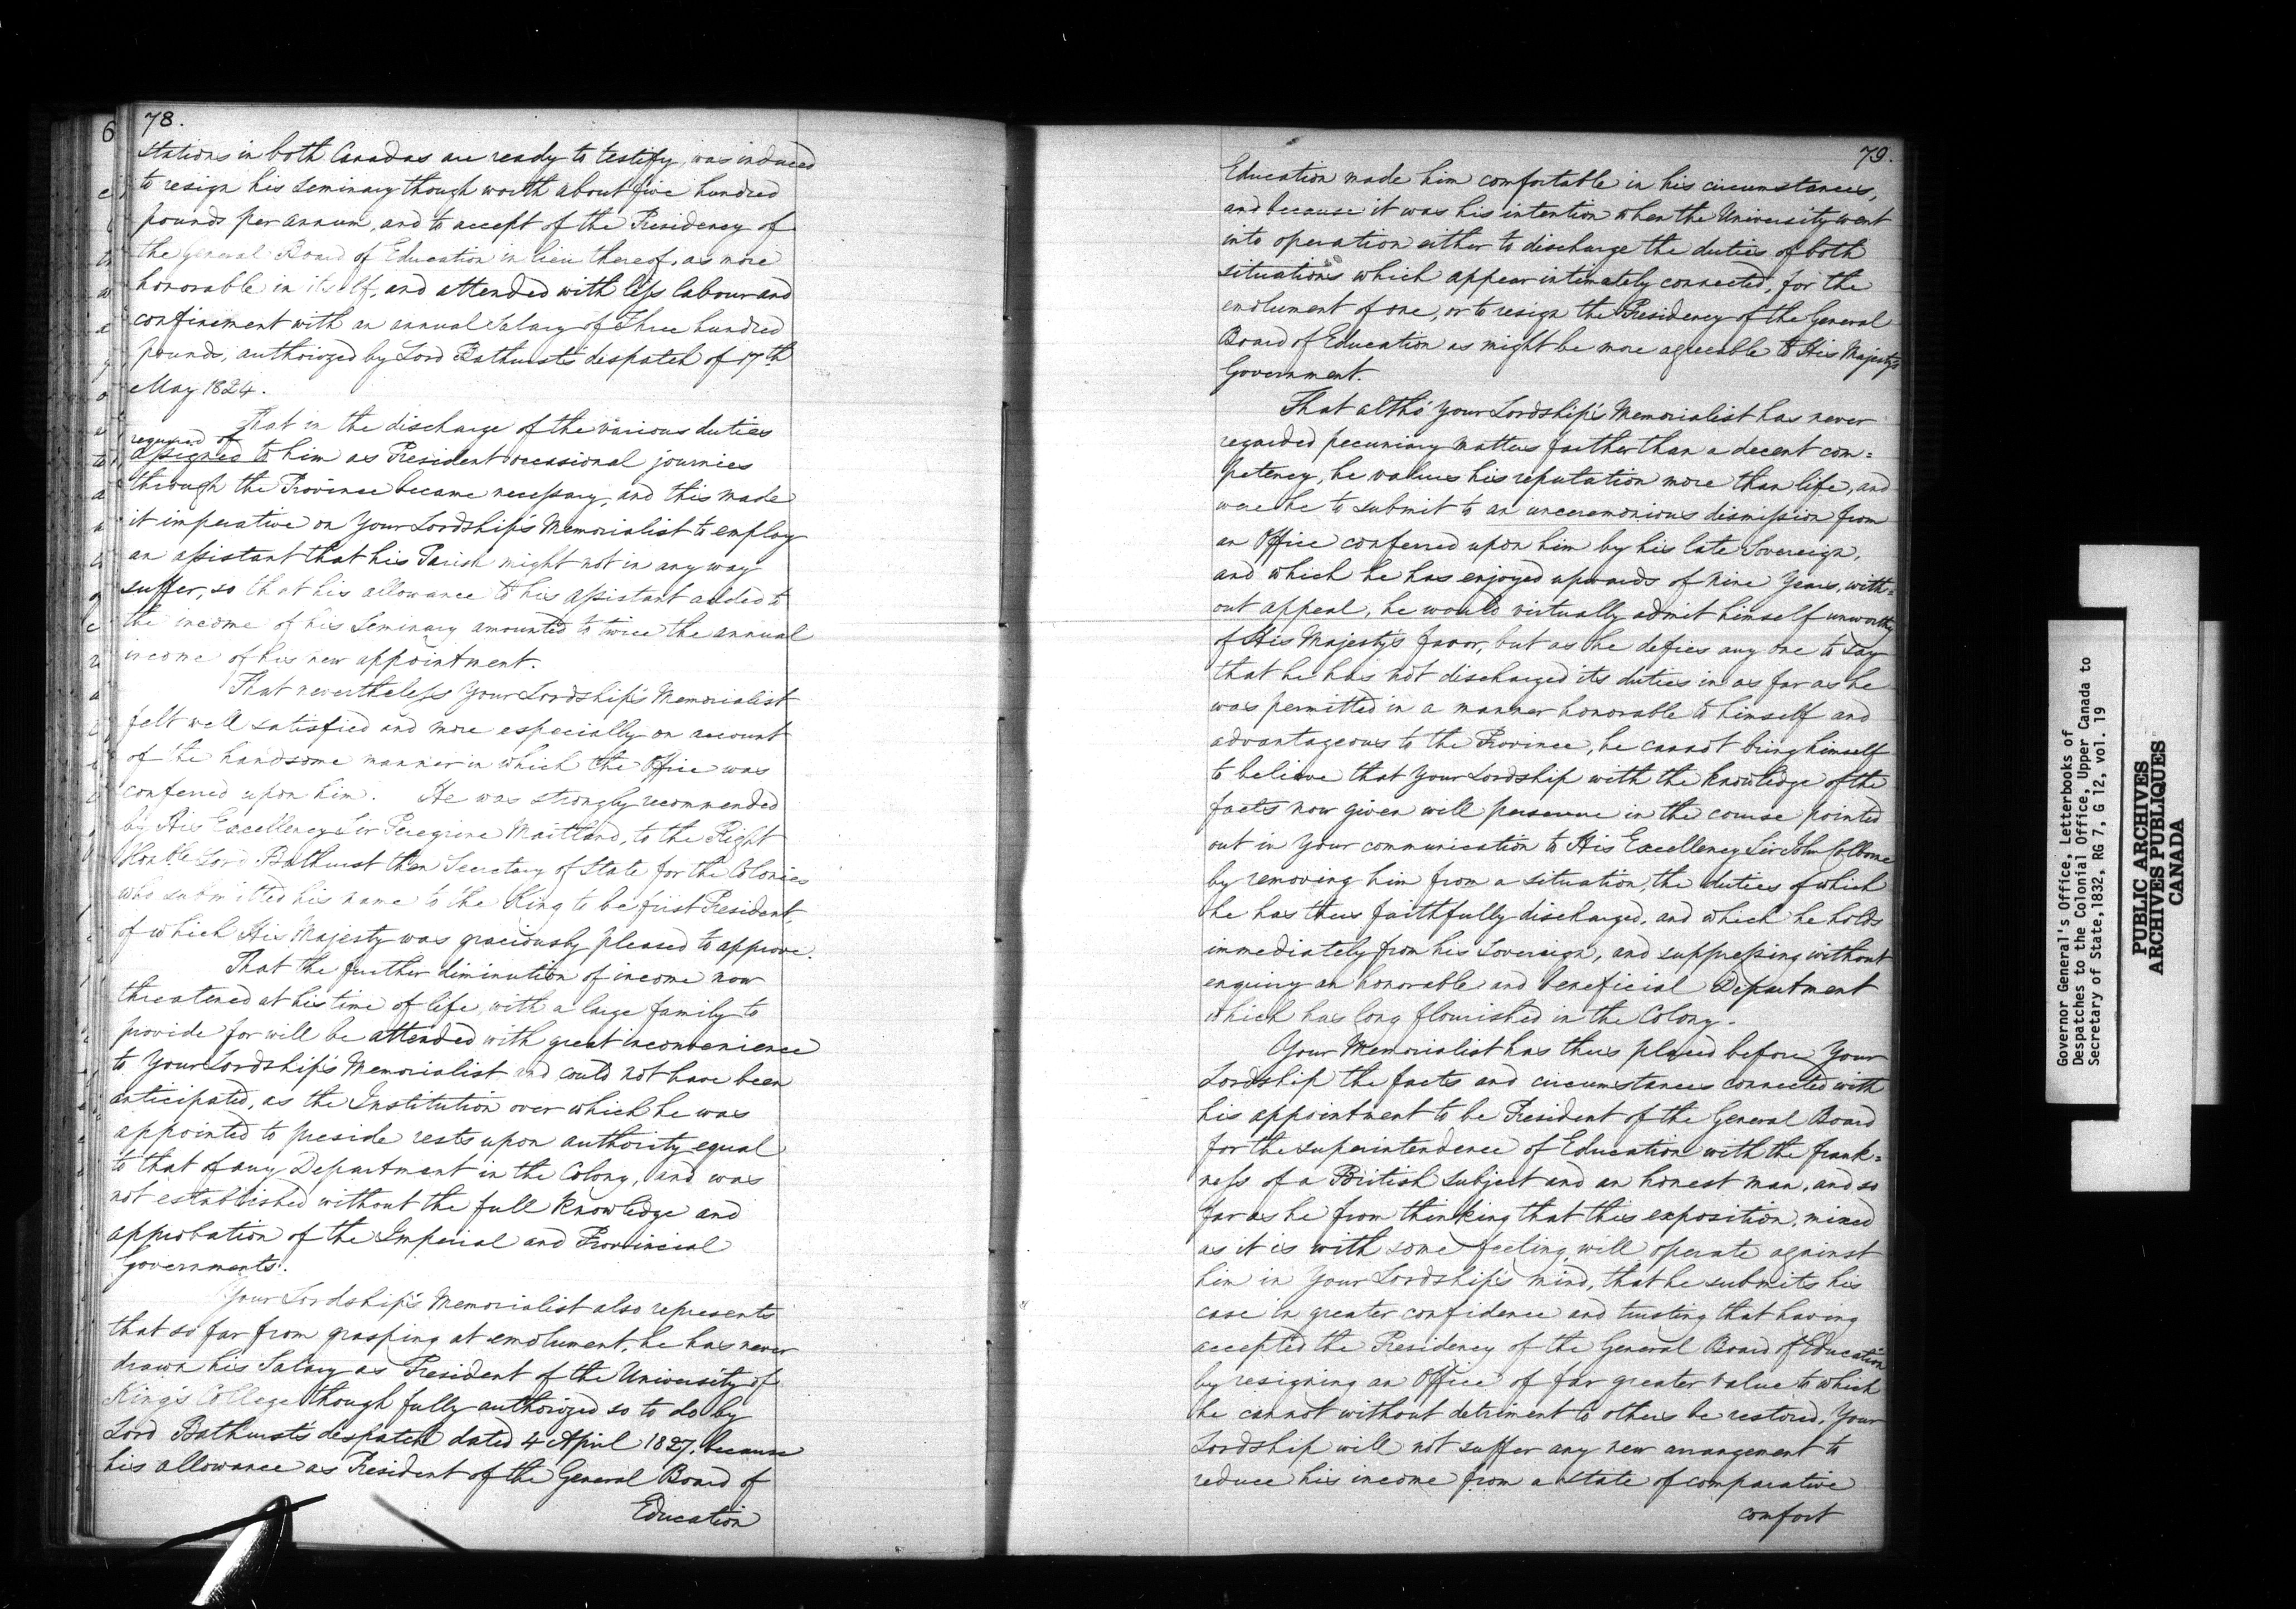 78.
stations in both Canadas are ready to testify, was induced
to resign his seminary though worth about five hundred
pounds per annum, and to accept of the Presidency of
the general Board of Education in lieu thereof, as more
honorable in itself, and attended with less labour and
confinement with an annual Salary of Three hundred
pounds, authorized by Lord Bathurst's despatch of 17th
May 1824.
That in the discharge of the various duties
required of
assigned to him as President occasional journies
through the Province became necessary, and this made
it imperative on Your Lordship's Memorialist to employ
an assistant that his Parish might not in any way
suffer, so that his allowance to his assistant added to
the income of his Seminary amounted to twice the annual
income of his new appointment.
That nevertheless Your Lordship's Memorialist
felt well satisfied and more especially on account
of the handsome manner in which the Office was
conferred upon him. He was strongly recommended
by His Excellency Sir Peregrine Maitland, to the Right
Honble Lord Bathurst then Secretary of State for the Colonies
who submitted his name to the King to be first President,
of which His Majesty was graciously pleased to approve.
That the further diminution of income now
threatened at his time of life, with a large family to
provide for will be attended with great inconvenience
to Your Lordship's Memorialist and could not have been
anticipated, as the Institution over which he was
appointed to preside rests upon authority equal
to that of any Department in the Colony, and was
not established without the full knowledge and
approbation of the Imperial and Provincial
Governments.
Your Lordship's Memorialist also represents
that so far from grasping at emolument, he has never
drawn his Salary as President of the University of
King's College though fully authorized so to do by
Lord Bathurst's despatch dated 4 April 1827, because
his allowance as President of the General Board of
Education
79.
Education made him comfortable in his circumstances,
and because it was his intention when the University went
into operation either to discharge the duties of both
situations which appear intimately connected, for the
emolument of one, or to resign the Presidency of the General
Board of Education as might be more agreeable to His Majesty's
Government.
That altho' Your Lordship's Memorialist has never
regarded pecuniary matters farther than a decent com=
petency, he values his reputation more than life, and
were he to submit to an unceremonious dismission from
an Office conferred upon him by his late Sovereign,
and which he has enjoyed upwards of nine Years, with=
out appeal, he would virtually admit himself unworthy
of His Majesty's favor, but as he defies any one to say
that he has not discharged its duties in as far as he
was permitted in a manner honorable to himself and
advantageous to the Province, he cannot bring himself
to believe that Your Lordship with the knowledge of the
facts now given will persevere in the course pointed
out in Your communication to His Excellency Sir John Colborne
by removing him from a situation, the duties of which
he has thus faithfully discharged, and which he holds
immediately from his Sovereign, and suppressing without
enquiry an honorable and beneficial Department
which has long flourished in the Colony.
Your Memorialist has thus placed before Your
Lordship the facts and circumstances connected with
his appointment to be President of the General Board
for the superintendence of Education with the frank=
ness of a British subject and an honest man, and so
far as he from thinking that this exposition, mixed
as it is with some feeling, will operate against
him in Your Lordship's mind, that he submits his
case in greater confidence and trusting that having
accepted the Presidency of the General Board of Education
by resigning an Office of far greater value to which
he cannot without detriment to others be restored, Your
Lordship will not suffer any new arrangement to
reduce his income from a state of comparative
comfort
Governor General's Office, Letterbooks of
Despatches to the Colonial Office, Upper Canada to
Secretary of State, 1832, RG 7, G 12, vol. 19
PUBLIC ARCHIVES
ARCHIVES PUBLIQUES
CANADA